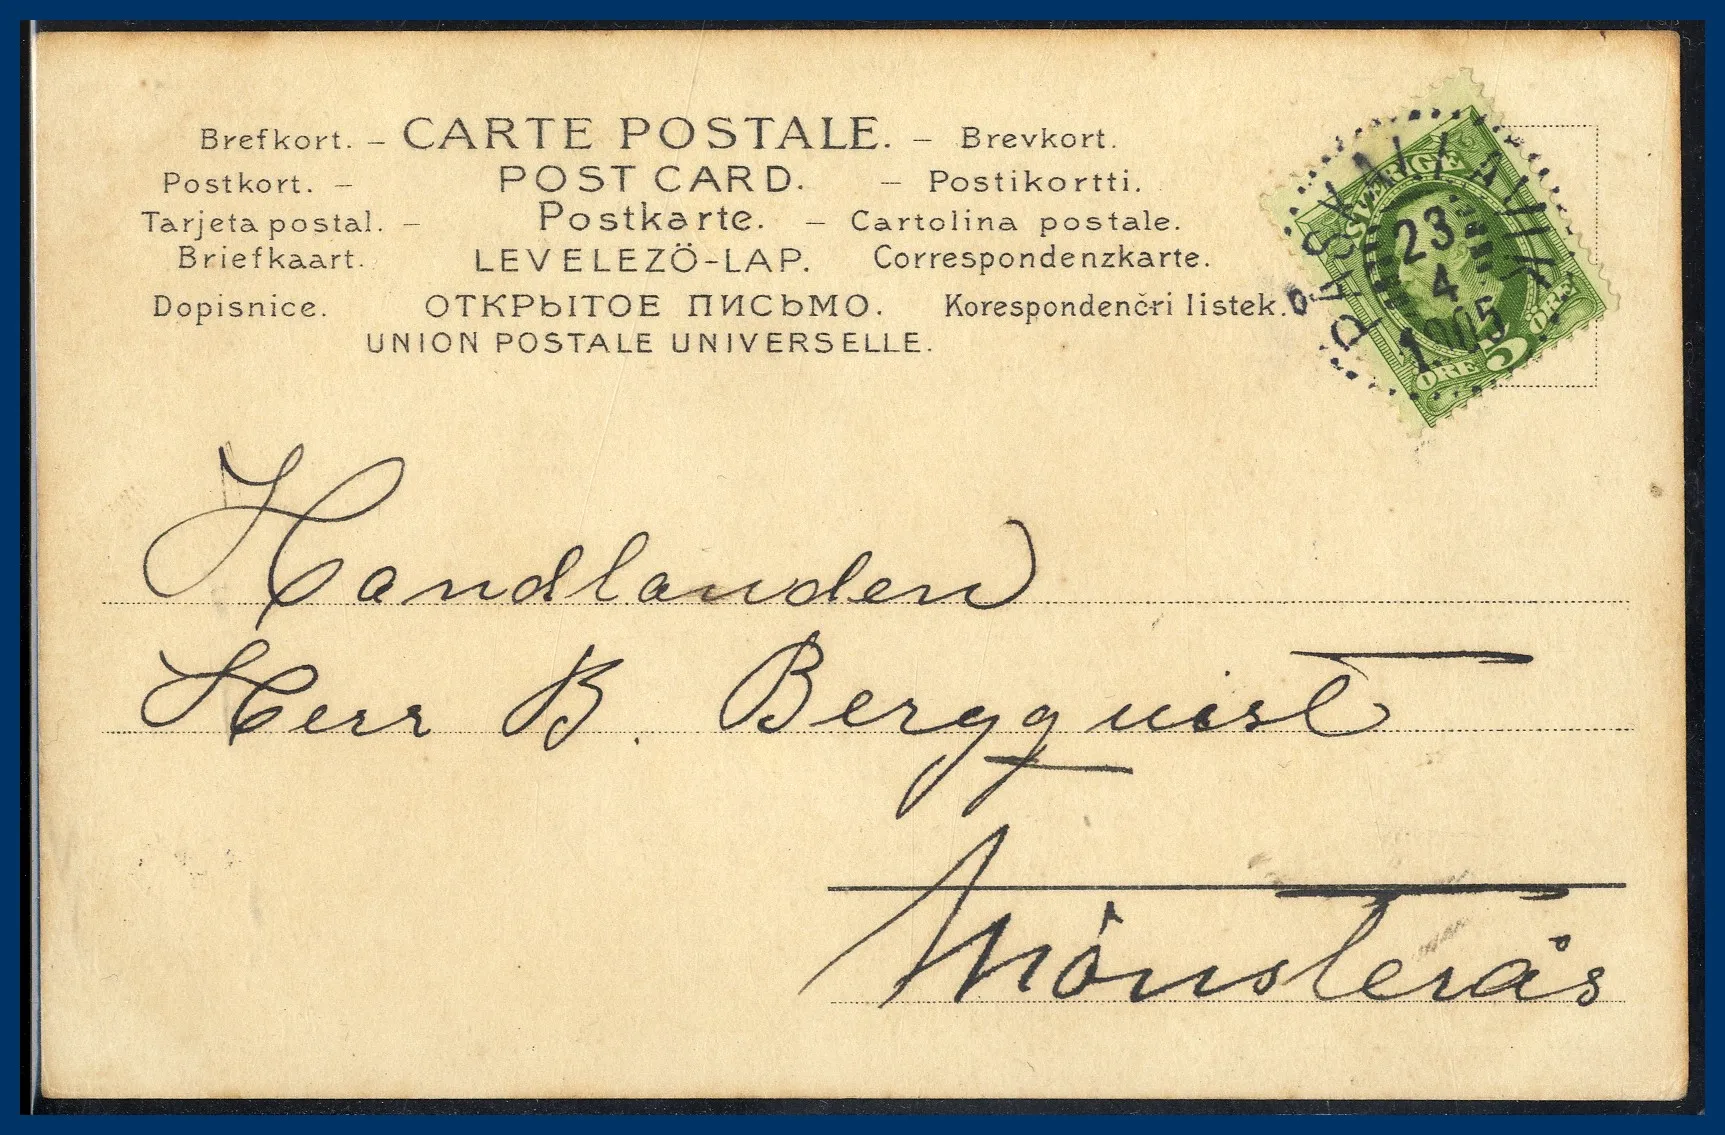 Brefkort. – CARTE POSTALE. – Brevkort.
Postkort. – POST CARD. – Postikortti.
Tarjeta postal. – Postkarte. – Cartolina postale.
Briefkaart. LEVELEZÖ-LAP. Correspondenzkarte.
Dopisnice. ОТКРЫТОЕ ПИСЬМО. Korespondenčri listek.
UNION POSTALE UNIVERSELLE.
SVERIGE
23
4
1905
ÖRE 5 ÖRE
Handlanden
Herr B. Bergquist
Mönsterås